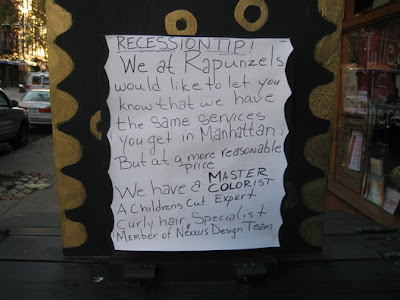 RECESSION TIP!
We at Rapunzels
would like to let you
know that we have
the same services
you get in Manhattan,
But at a more reasonable
price
We have a MASTER
COLORIST
A Childrens Cut Expert
Curly hair Specialist
Member of Nexxus Design Team,